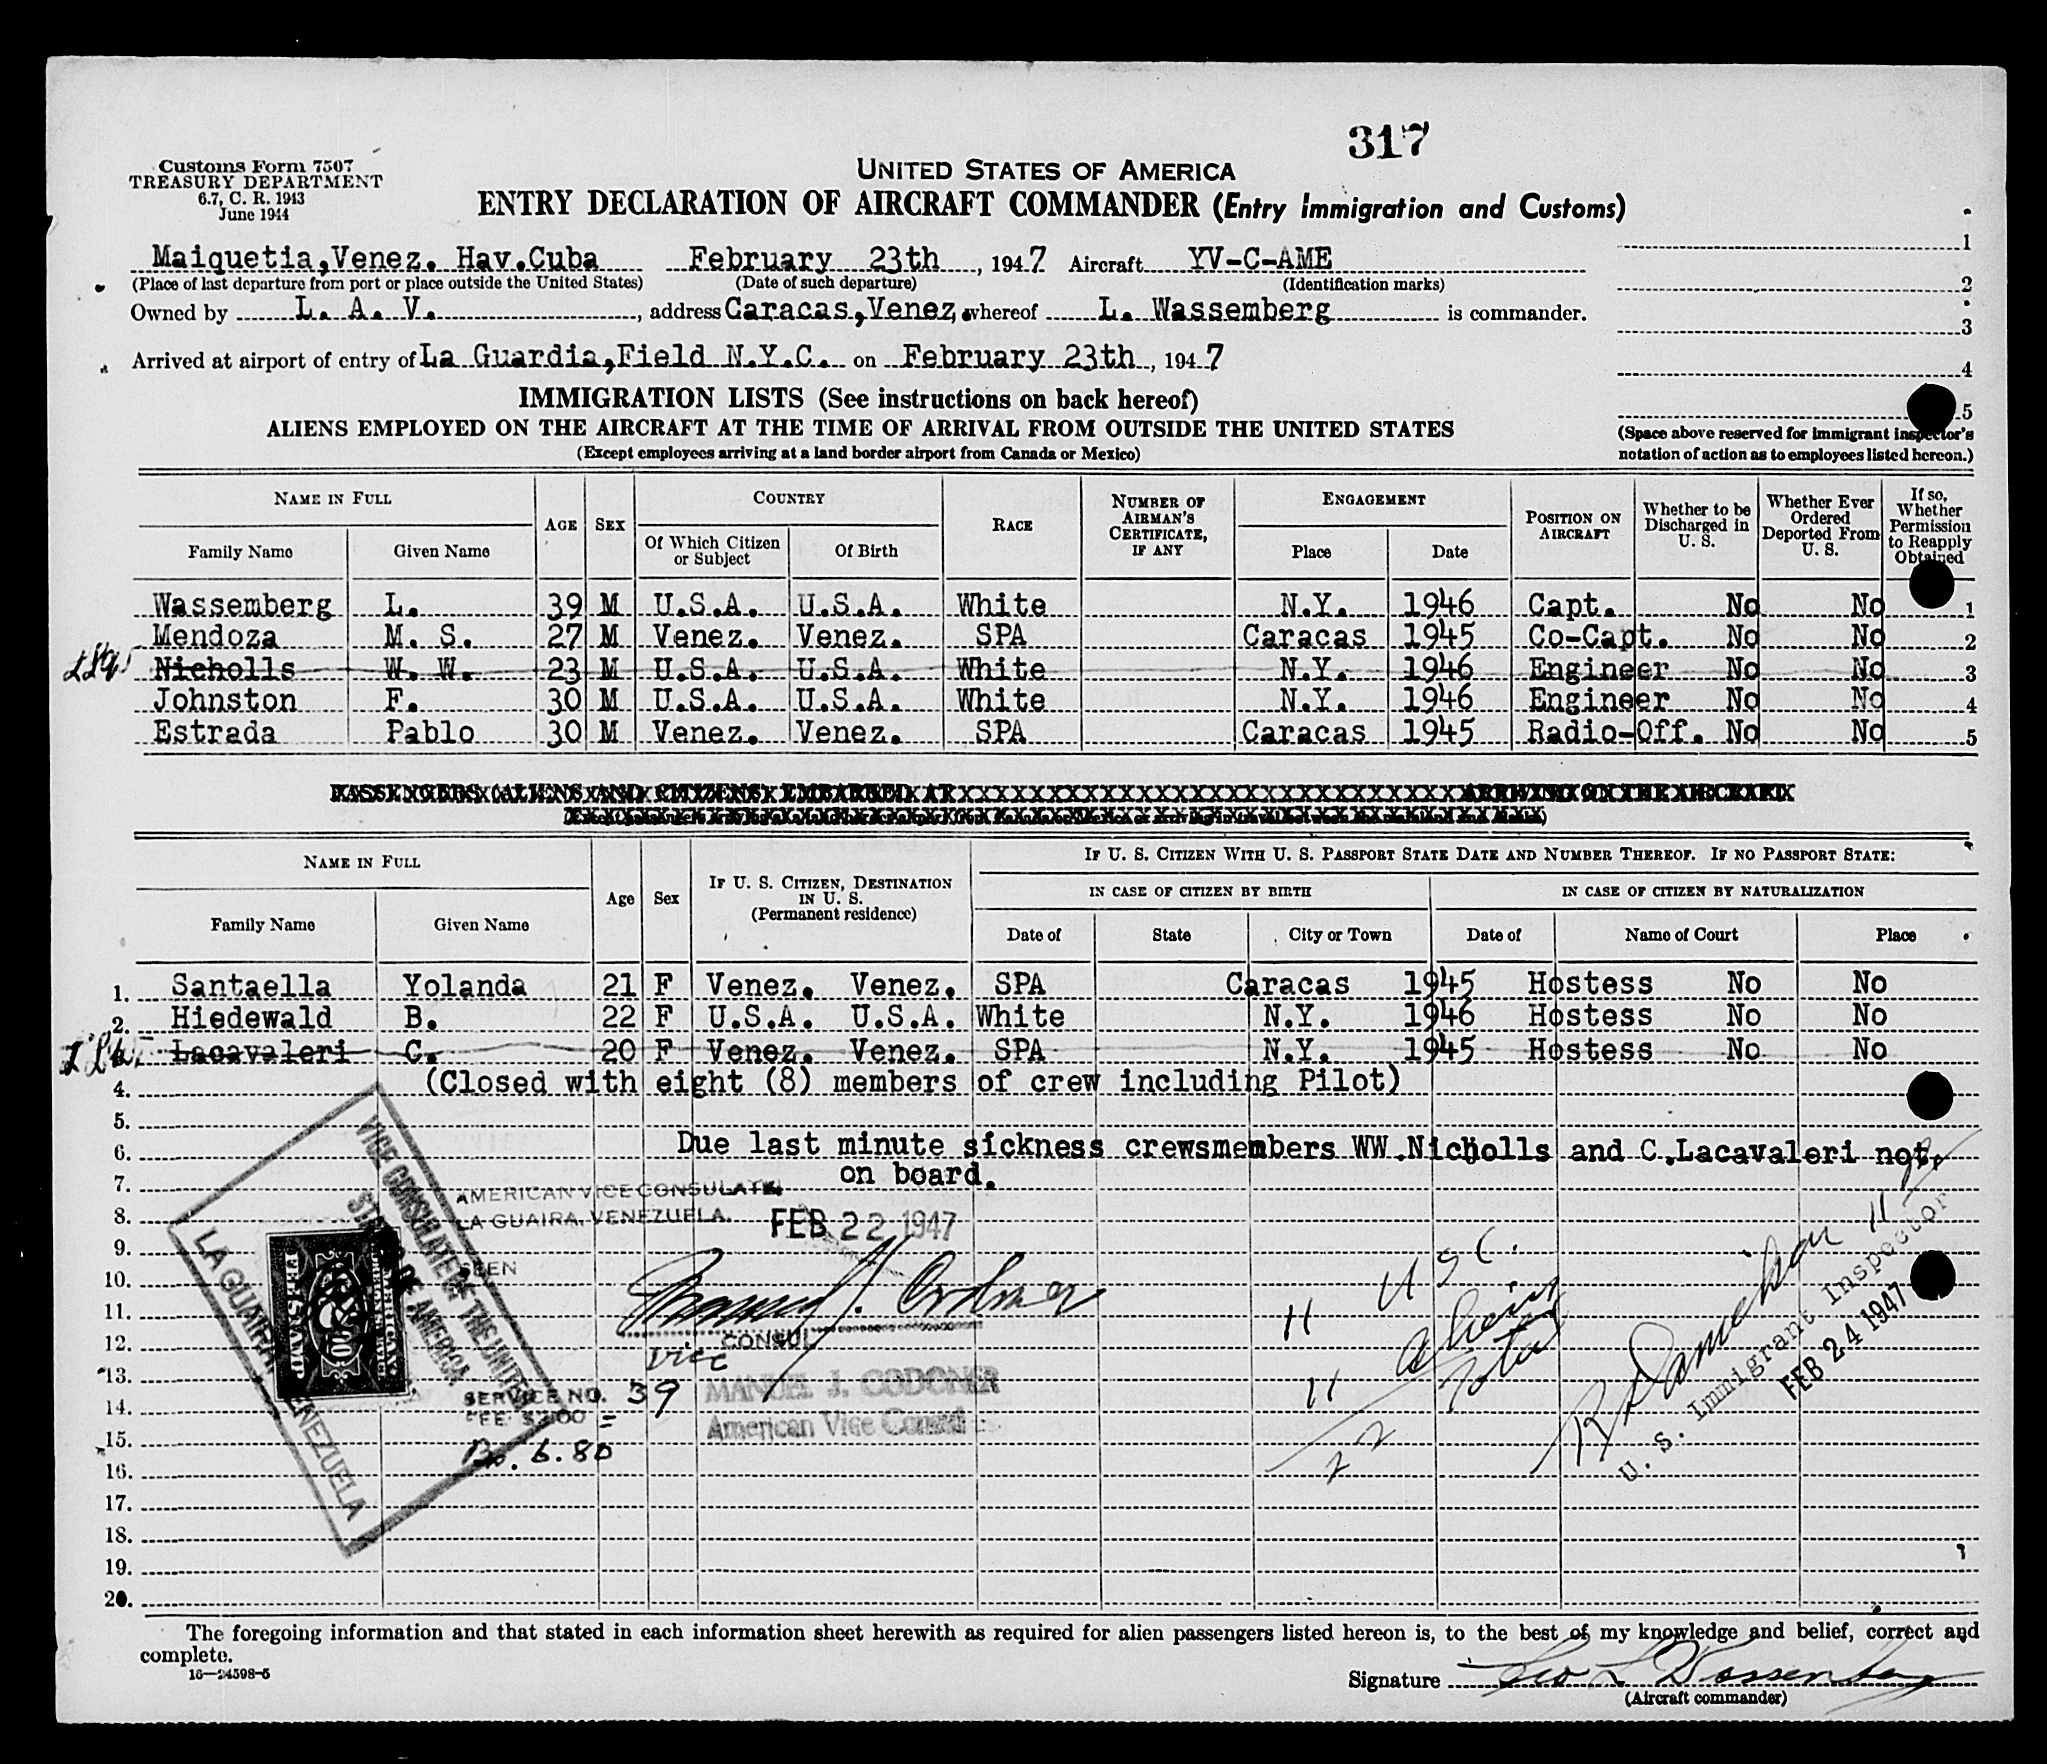 317
Customs Form 7507
TREASURY DEPARTMENT
6.7, C. R. 1943
June 1944
UNITED STATES OF AMERICA
ENTRY DECLARATION OF AIRCRAFT COMMANDER (Entry Immigration and Customs)
Maiquetia,Venez. Hav.Cuba February 23th, 1947 Aircraft YV-C-AME
(Place of last departure from port or place outside the United States) (Date of such departure) (Identification marks)
Owned by L. A. V., address Caracas,Venez, whereof L. Wassemberg is commander.
Arrived at airport of entry of La Guardia,Field N.Y.C. on February 23th, 1947
1
2
3
4
5
(Space above reserved for immigrant inspector's
notation of action as to employees listed hereon.)
IMMIGRATION LISTS (See instructions on back hereof)
ALIENS EMPLOYED ON THE AIRCRAFT AT THE TIME OF ARRIVAL FROM OUTSIDE THE UNITED STATES
(Except employees arriving at a land border airport from Canada or Mexico)
NAME IN FULL
Family Name Given Name
AGE SEX
COUNTRY
Of Which Citizen or Subject Of Birth
RACE
NUMBER OF AIRMAN'S CERTIFICATE, IF ANY
ENGAGEMENT
Place Date
POSITION ON AIRCRAFT
Whether to be Discharged in U. S.
Whether Ever Ordered Deported From U. S.
If so, Whether Permission to Reapply Obtained
Wassemberg L. 39 M U.S.A. U.S.A. White N.Y. 1946 Capt. No No 1
Mendoza M. S. 27 M Venez. Venez. SPA Caracas 1945 Co-Capt. No No 2
Nicholls W. W. 23 M U.S.A. U.S.A. White N.Y. 1946 Engineer No No 3
Johnston F. 30 M U.S.A. U.S.A. White N.Y. 1946 Engineer No No 4
Estrada Pablo 30 M Venez. Venez. SPA Caracas 1945 Radio-Off. No No 5
PASSENGERS (ALIENS AND CITIZENS) EMBARKED AT ARRIVING ON THE AIRCRAFT
NAME IN FULL
Family Name Given Name
Age Sex
IF U. S. CITIZEN, DESTINATION IN U. S.
(Permanent residence)
IF U. S. CITIZEN WITH U. S. PASSPORT STATE DATE AND NUMBER THEREOF. IF NO PASSPORT STATE:
IN CASE OF CITIZEN BY BIRTH IN CASE OF CITIZEN BY NATURALIZATION
Date of State City or Town Date of Name of Court Place
1. Santaella Yolanda 21 F Venez. Venez. SPA Caracas 1945 Hostess No No
2. Hiedewald B. 22 F U.S.A. U.S.A. White N.Y. 1946 Hostess No No
Lacavaleri C. 20 F Venez. Venez. SPA N.Y. 1945 Hostess No No
4. (Closed with eight (8) members of crew including Pilot)
5.
6. Due last minute sickness crewsmembers WW.Nicholls and C.Lacavaleri not
7. on board.
8.
9.
10.
11.
12.
13.
14.
15.
16.
17.
18.
19.
20.
VICE CONSULATE OF THE UNITED
STATES OF AMERICA
LA GUAIRA VENEZUELA
AMERICAN VICE CONSULATE
LA GUAIRA, VENEZUELA.
FEB 22 1947
SEEN
Manuel J. Codoner
CONSUL
Vice
MANUEL J. CODONER
American Vice Consul
SERVICE NO. 39
FEE $2.00 =
Bs. 6.80
11 USC.
11 Aliens
22 Total
U. S. Immigrant Inspector
FEB 24 1947
The foregoing information and that stated in each information sheet herewith as required for alien passengers listed hereon is, to the best of my knowledge and belief, correct and
complete.
16—24598-5
Signature Geo L Wassenberg
(Aircraft commander)